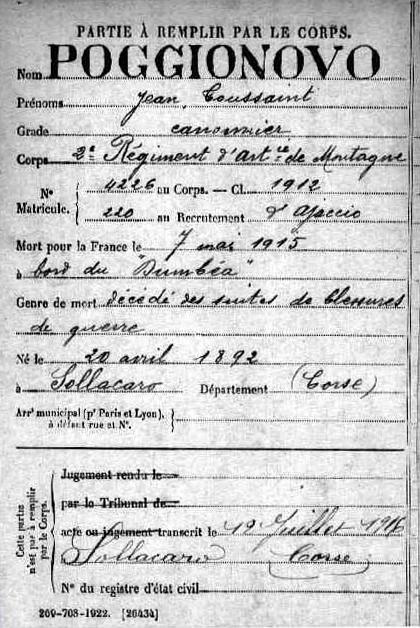 PARTIE À REMPLIR PAR LE CORPS.
Nom POGGIONOVO
Prénoms Jean Toussaint
Grade canonnier
Corps 2e Régiment d'Artie de Montagne
N° Matricule. { 4226 au Corps. — Cl. 1912
220 au Recrutement d'Ajaccio
Mort pour la France le 7 mai 1915
à bord du "Dumbéa"
Genre de mort décédé des suites de blessures
de guerre
Né le 20 avril 1892
à Sollacaro Département (Corse)
Arrt municipal (pr Paris et Lyon),
à défaut rue et N°.
Cette partie n'est pas à remplir par le Corps.
Jugement rendu le
par le Tribunal de
acte ou jugement transcrit le 19 Juillet 1916
Sollacaro (Corse)
N° du registre d'état civil
269-708-1922. [26434]